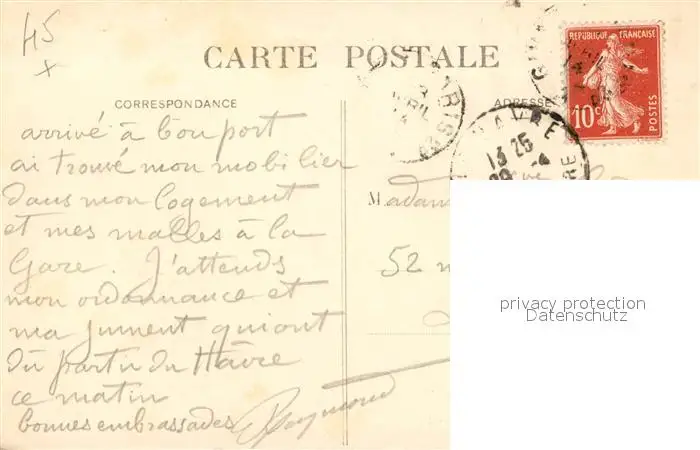 45
x
CARTE POSTALE
CORRESPONDANCE
ADRESSE
REPUBLIQUE FRANÇAISE
10c
POSTES
HAVRE
13 25
arrivé à bon port
ai trouvé mon mobilier
dans mon logement
et mes malles à la
Gare. J'attends
mon ordonnance et
ma jument qui ont
dû partir du Hâvre
ce matin
bonnes embrassades
Raymond
Madam
52
privacy protection
Datenschutz